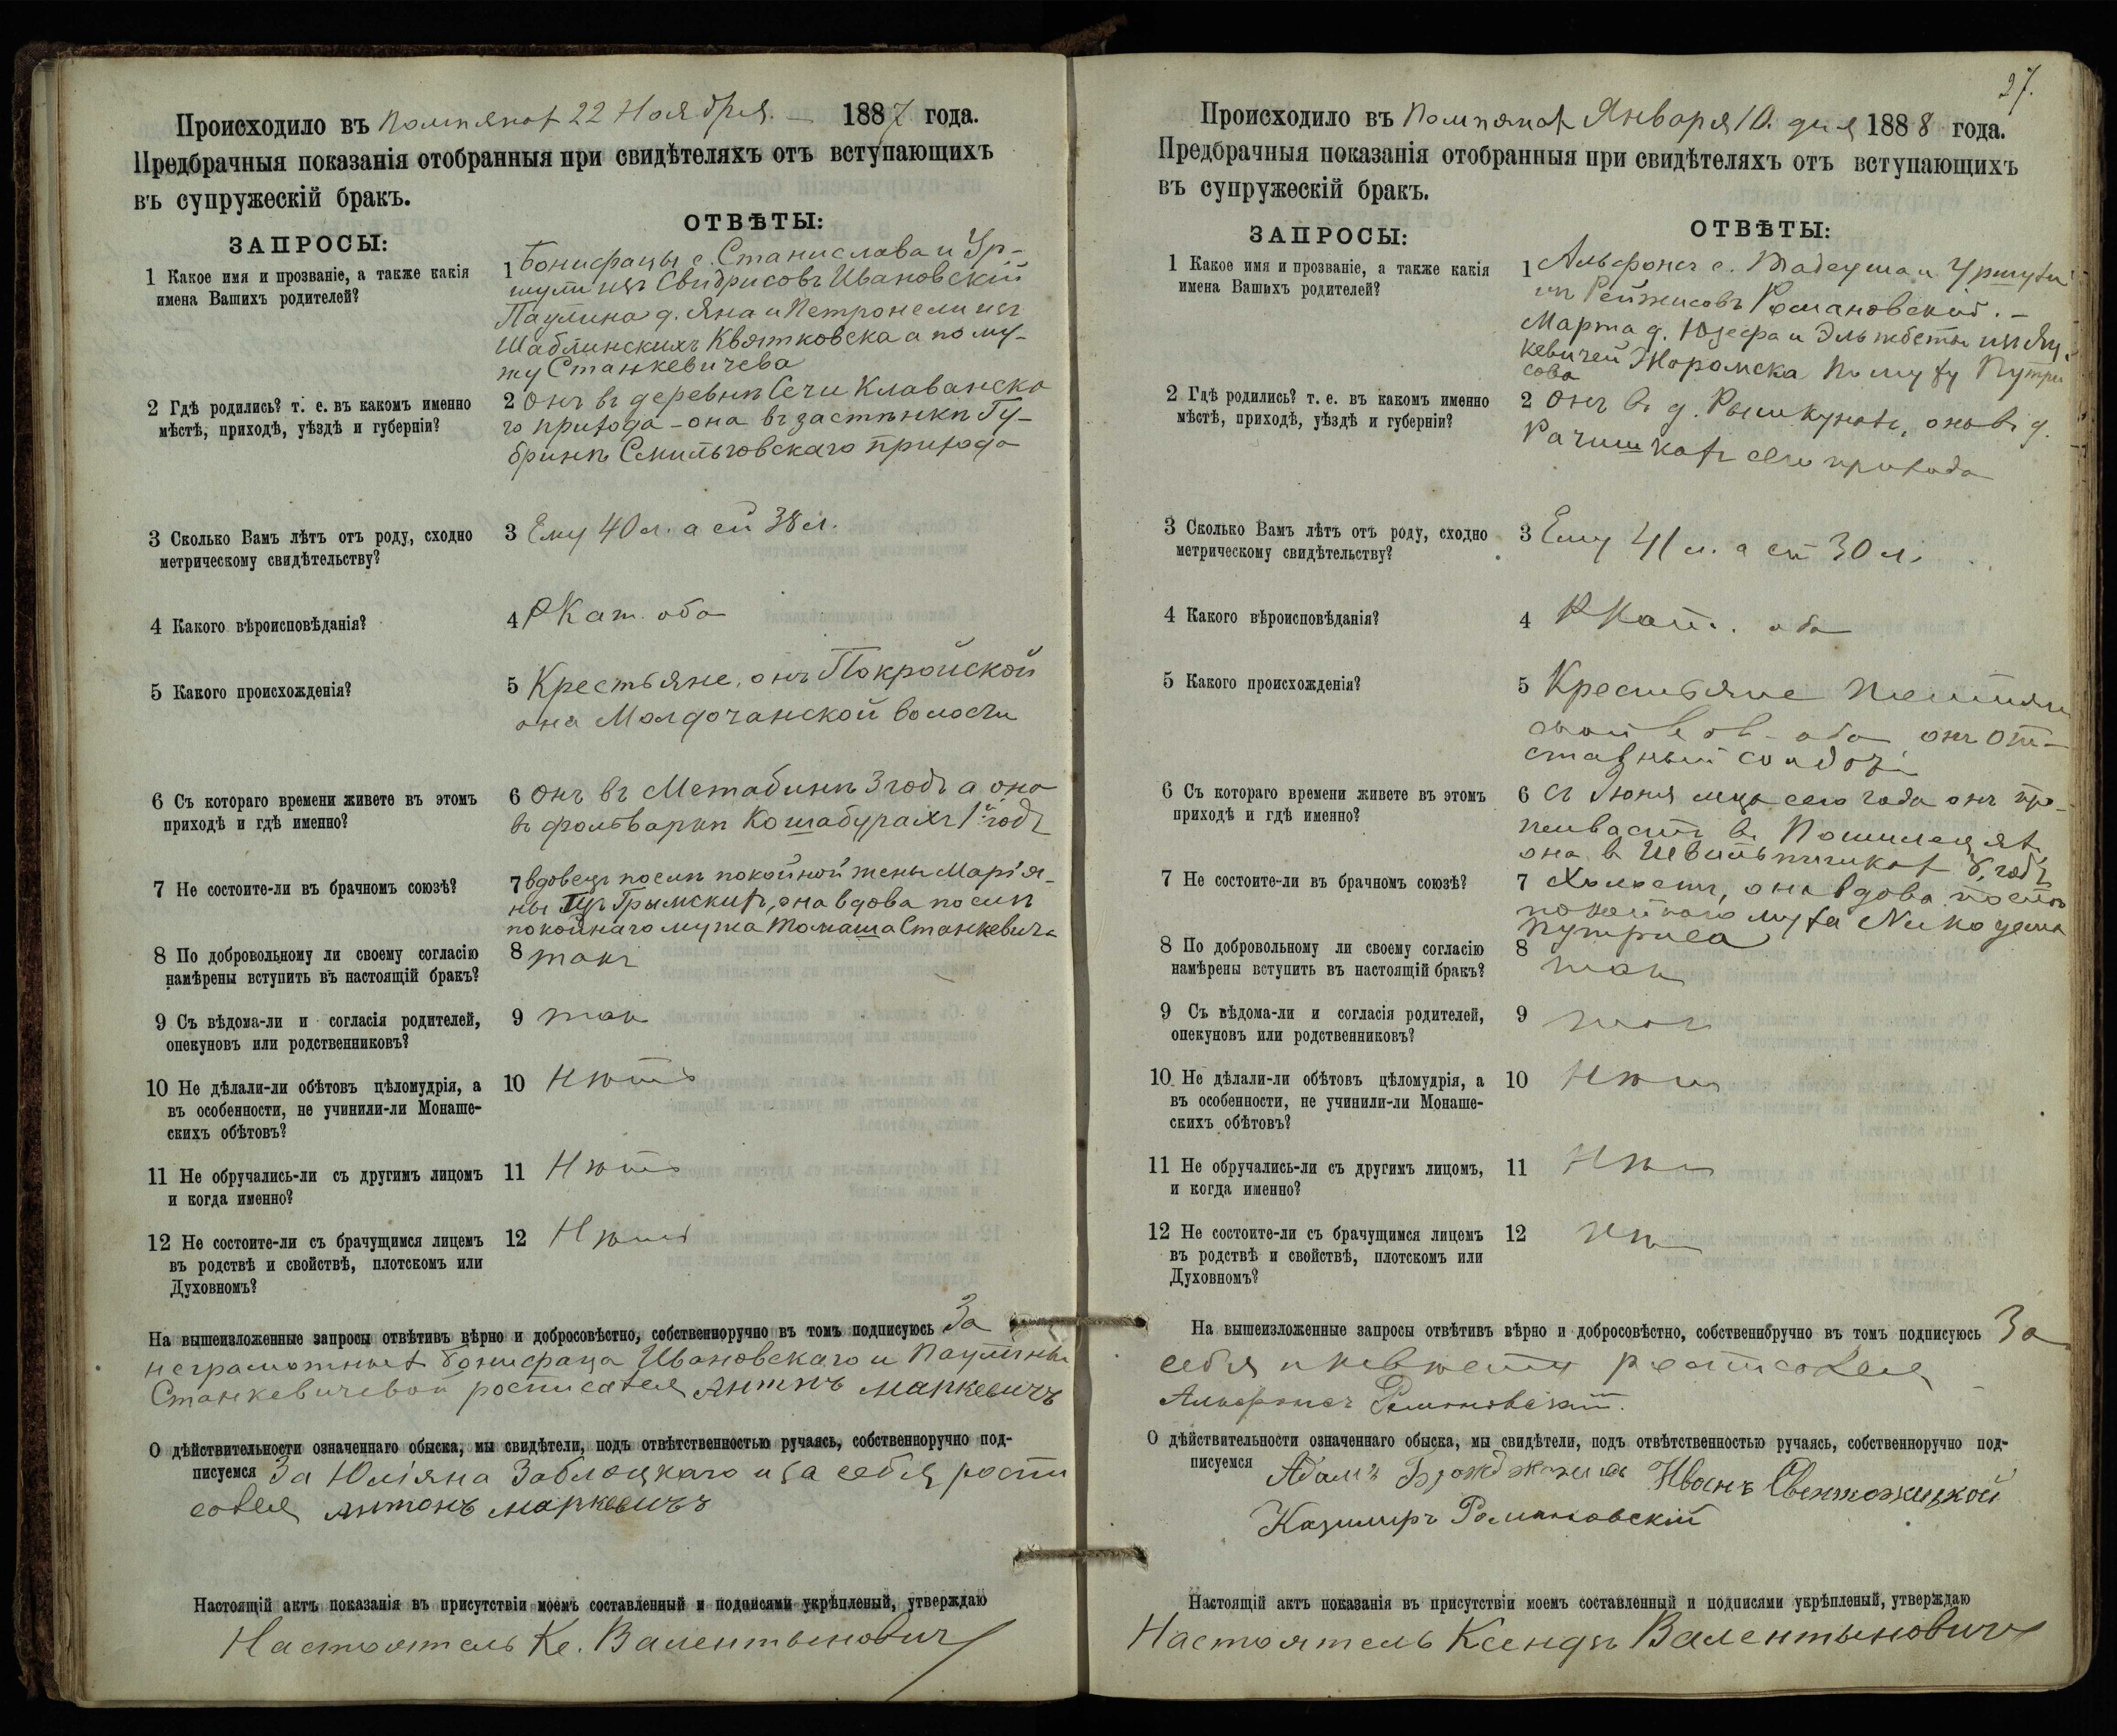 Происходило въ Помпянахъ 22 Ноября. — 1887 года.
Предбрачныя показанія отобранныя при свидѣтеляхъ отъ вступающихъ
въ супружескій бракъ.
ЗАПРОСЫ:
ОТВѢТЫ:
1 Какое имя и прозваніе, а также какія
имена Вашихъ родителей?
1 Бонифацы с. Станислава и Ур-
шули изъ Свидрисовъ Ивановскій
Паулина д. Яна и Петронели изъ
Шаблинскихъ Квятковска а по му-
жу Станкевичева
2 Гдѣ родились? т. е. въ какомъ именно
мѣстѣ, приходѣ, уѣздѣ и губерніи?
2 Онъ въ деревнѣ Сечи Клаванска
го прихода - она въ застѣнкѣ Гу-
бринѣ Смильговскаго прихода
3 Сколько Вамъ лѣтъ отъ роду, сходно
метрическому свидѣтельству?
3 Ему 40 л. а ей 38 л.
4 Какого вѣроисповѣданія?
4 РКат. оба
5 Какого происхожденія?
5 Крестьяне, онъ Покройской
она Молдочанской волости
6 Съ котораго времени живете въ этомъ
приходѣ и гдѣ именно?
6 Онъ въ Метабинѣ 3 годъ а она
въ фольваркѣ Кошабурахъ 1й годъ
7 Не состоите-ли въ брачномъ союзѣ?
7 вдовецъ послѣ покойной жены Марія-
ны изъ Грымскихъ, она вдова послѣ
покойнаго мужа Томаша Станкевича
8 По добровольному ли своему согласію
намѣрены вступить въ настоящій бракъ?
8 такъ
9 Съ вѣдома-ли и согласія родителей,
опекуновъ или родственниковъ?
9 такъ
10 Не дѣлали-ли обѣтовъ цѣломудрія, а
въ особенности, не учинили-ли Монаше-
скихъ обѣтовъ?
10 Нѣтъ
11 Не обручались-ли съ другимъ лицомъ
и когда именно?
11 Нѣтъ
12 Не состоите-ли съ брачущимся лицемъ
въ родствѣ и свойствѣ, плотскомъ или
Духовномъ?
12 Нѣтъ
На вышеизложенные запросы отвѣтивъ вѣрно и добросовѣстно, собственноручно въ томъ подписуюсь За
неграмотныхъ Бонифаца Ивановскаго и Паулины
Станкевичевой росписался Антонъ Маркевичъ
О дѣйствительности означеннаго обыска, мы свидѣтели, подъ отвѣтственностью ручаясь, собственноручно под-
писуемся За Юліяна Заблоцкаго и за себя роспи
сался Антонъ Маркевичъ
Настоящій актъ показанія въ присутствіи моемъ составленный и подписями укрѣпленый, утверждаю
Настоятель Кс. Валентыновичъ
27.
Происходило въ Помпянахъ Января 10. дня 1888 года.
Предбрачныя показанія отобранныя при свидѣтеляхъ отъ вступающихъ
въ супружескій бракъ.
ЗАПРОСЫ:
ОТВѢТЫ:
1 Какое имя и прозваніе, а также какія
имена Вашихъ родителей?
1 Альфонсъ с. Тадеуша и Уршули
изъ Рейжисовъ Романовскій. —
Марта д. Юзефа и Эльжбеты изъ
кевичей Жоромска по мужу Путри
сова
2 Гдѣ родились? т. е. въ какомъ именно
мѣстѣ, приходѣ, уѣздѣ и губерніи?
2 Онъ въ д. Рымкунахъ, она въ д.
Рачишкахъ сего прихода
3 Сколько Вамъ лѣтъ отъ роду, сходно
метрическому свидѣтельству?
3 Ему 41 л. а ей 30 л.
4 Какого вѣроисповѣданія?
4 РКат. оба
5 Какого происхожденія?
5 Крестьяне
оба онъ от-
ставный солдатъ
6 Съ котораго времени живете въ этомъ
приходѣ и гдѣ именно?
6 съ Іюня мца сего года онъ про-
живаетъ въ
она въ годъ
7 Не состоите-ли въ брачномъ союзѣ?
7 Холостъ, она вдова послѣ
покойнаго мужа Никодема
Путриса
8 По добровольному ли своему согласію
намѣрены вступить въ настоящій бракъ?
8 такъ
9 Съ вѣдома-ли и согласія родителей,
опекуновъ или родственниковъ?
9 такъ
10 Не дѣлали-ли обѣтовъ цѣломудрія, а
въ особенности, не учинили-ли Монаше-
скихъ обѣтовъ?
10 Нѣтъ
11 Не обручались-ли съ другимъ лицомъ,
и когда именно?
11 Нѣтъ
12 Не состоите-ли съ брачущимся лицемъ
въ родствѣ и свойствѣ, плотскомъ или
Духовномъ?
12 Нѣтъ
На вышеизложенные запросы отвѣтивъ вѣрно и добросовѣстно, собственноручно въ томъ подписуюсь За
себя и невѣсту росписался
Альфонсъ Романовскій.
О дѣйствительности означеннаго обыска, мы свидѣтели, подъ отвѣтственностью ручаясь, собственноручно под-
писуемся Адамъ Иванъ
Казимиръ Романовскій
Настоящій актъ показанія въ присутствіи моемъ составленный и подписями укрѣпленый, утверждаю
Настоятель Ксендзъ Валентыновичъ